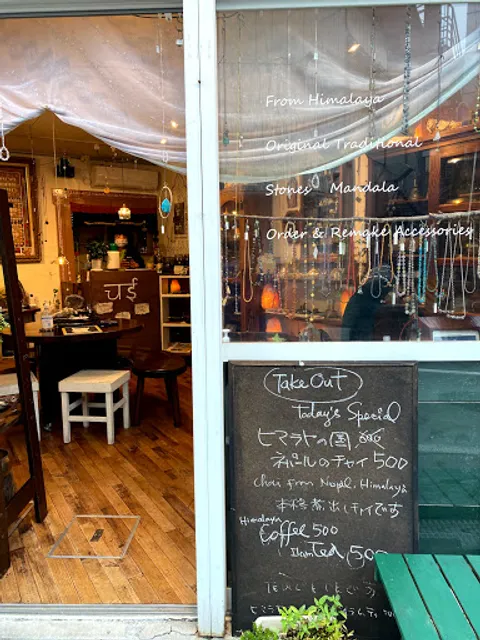 From Himalaya
Original Traditional
Stones Mandala
Order & Remake Accessories
चई
Take Out
Today's Special
ヒマラヤの国
ネパールのチャイ 500
Chai from Nepal, Himalaya
本格煮出しチャイです
Himalaya
Coffee 500
Ilam Tea 500